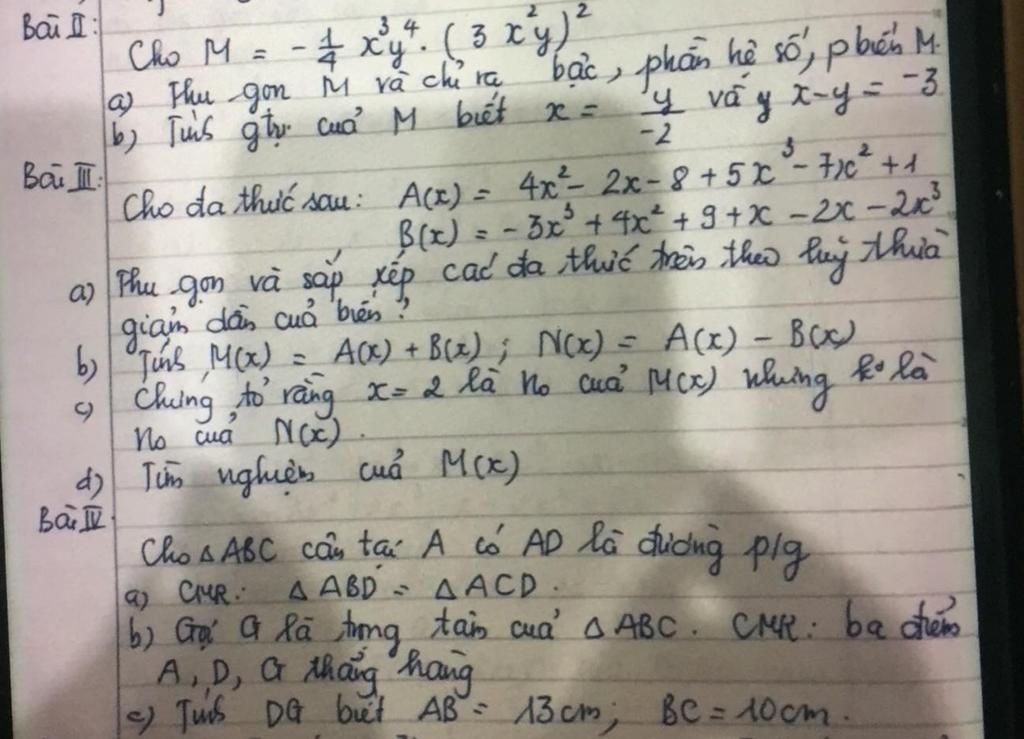 Bài II:
Cho M = - 1/4 x³y⁴. (3 x²y)²
a) Thu gọn M và chỉ ra bậc, phần hệ số, p biến M.
b) Tính gtrị của M biết x = y/-2 và y x-y = -3
Bài III:
Cho đa thức sau: A(x) = 4x² - 2x - 8 + 5x³ - 7x² + 1
B(x) = - 3x³ + 4x² + 9 + x - 2x - 2x³
a) Thu gọn và sắp xếp các đa thức trên theo luỹ thừa
giảm dần của biến?
b) Tính M(x) = A(x) + B(x) ; N(x) = A(x) - B(x)
c) Chứng tỏ rằng x = 2 là no của M(x) nhưng ko là
no của N(x).
d) Tìm nghiệm của M(x)
Bài IV
Cho △ABC cân tại A có AD là đường p/g
a) CMR: △ABD = △ACD.
b) Gọi G là trọng tâm của △ABC. CMR: ba điểm
A, D, G thẳng hàng
c) Tính DG biết AB = 13cm; BC = 10cm.